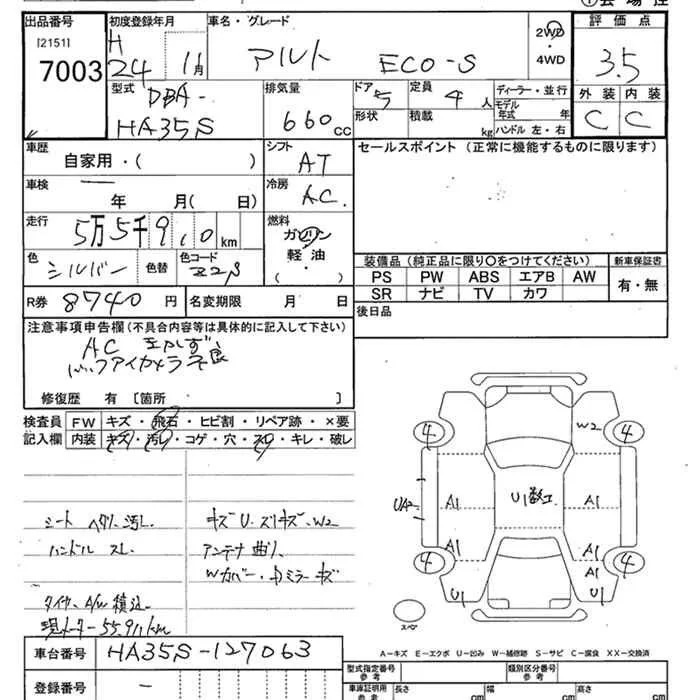 出品番号 初度登録年月 車名・グレード 2WD・4WD 評価点
[2151]
7003
H 24 11月
アルト ECO-S
3.5
型式 DBA-HA35S
排気量 660cc
ドア 5
定員 4人
ディーラー・並行
モデル年式 年
形状
積載 kg
ハンドル 左・右
外装 内装
C C
車歴 自家用・( )
シフト AT
セールスポイント(正常に機能するものに限ります)
車検 ー 年 月( 日)
冷房 A.C.
走行 5万5千9,10km
燃料 ガソリン
軽油
・
( )
色 シルバー 色替 色コード Z2S
装備品(純正品に限り〇をつけてください) 新車保証書
PS PW ABS エアB AW 有・無
SR ナビ TV カワ
R券 8740円 名変期限 月 日
後日品
注意事項申告欄(不具合内容等は具体的に記入して下さい)
AC
バックアイカメラ不良
修復歴 有〔箇所 〕
検査員 FW キズ・飛石・ヒビ割・リペア跡・×要
記入欄 内装 キズ・汚レ・コゲ・穴・スレ・キレ・破レ
シート ヘタリ、汚レ
キズU・スリキズ・W2
ハンドル スレ
アンテナ曲り、
Wカバー・Dミラーキズ
タイヤ、A/W積込
現メーター 55,911km
4 W2 4
UA2 A1 U1数コ A1
A1 A1
4 A1 4
U1 U1
スペア
A-キズ E-エクボ U-凹み W-補修跡 S-サビ C-腐食 XX-交換済
車台番号 HA35S-127063
登録番号 ー
型式指定番号 参考 類別区分番号 参考
車庫証明用 参考 長さ cm 幅 cm 高さ cm